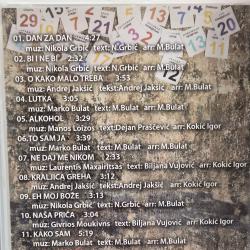 29 7 5 7 2
01. DAN ZA DAN 4:27
muz: Nikola Grbić text: N.Grbić arr: M.Bulat
02. BI I NE BI 2:32
muz: Nikola Grbić text: N.Grbić arr: M.Bulat
03. O KAKO MALO TREBA 3:53
muz: Andrej Jakšić tekst: Andrej Jakšić arr: M.Bulat
04. LUTKA 3:05
muz: Marko Bulat text: M.Bulat arr: M.Bulat
05. ALKOHOL 3:29
muz: Manos Loizos text: Dejan Praščević arr: Kokić Igor
06. TO SAM JA 3:39
muz: Marko Bulat text: M.Bulat arr: M.Bulat
07. NE DAJ ME NIKOM 3:33
muz: Laurentis Maxairitsas text: Biljana Vujović arr: Kokić Igor
08. KRALJICA GREHA 3:12
muz: Andrej Jakšić tekst: Andrej Jakšić arr: M.Bulat
09. EH MOJ BOŽE 3:13
muz: Nikola Grbić text: N.Grbić arr: M.Bulat
10. NAŠA PRIČA 3:04
muz: Givrios Moukivns text: Biljana Vujović arr: Kokić Igor
11. KAKO SAM 5:19
muz: Marko Bulat text: M.Bulat arr: M.Bulat